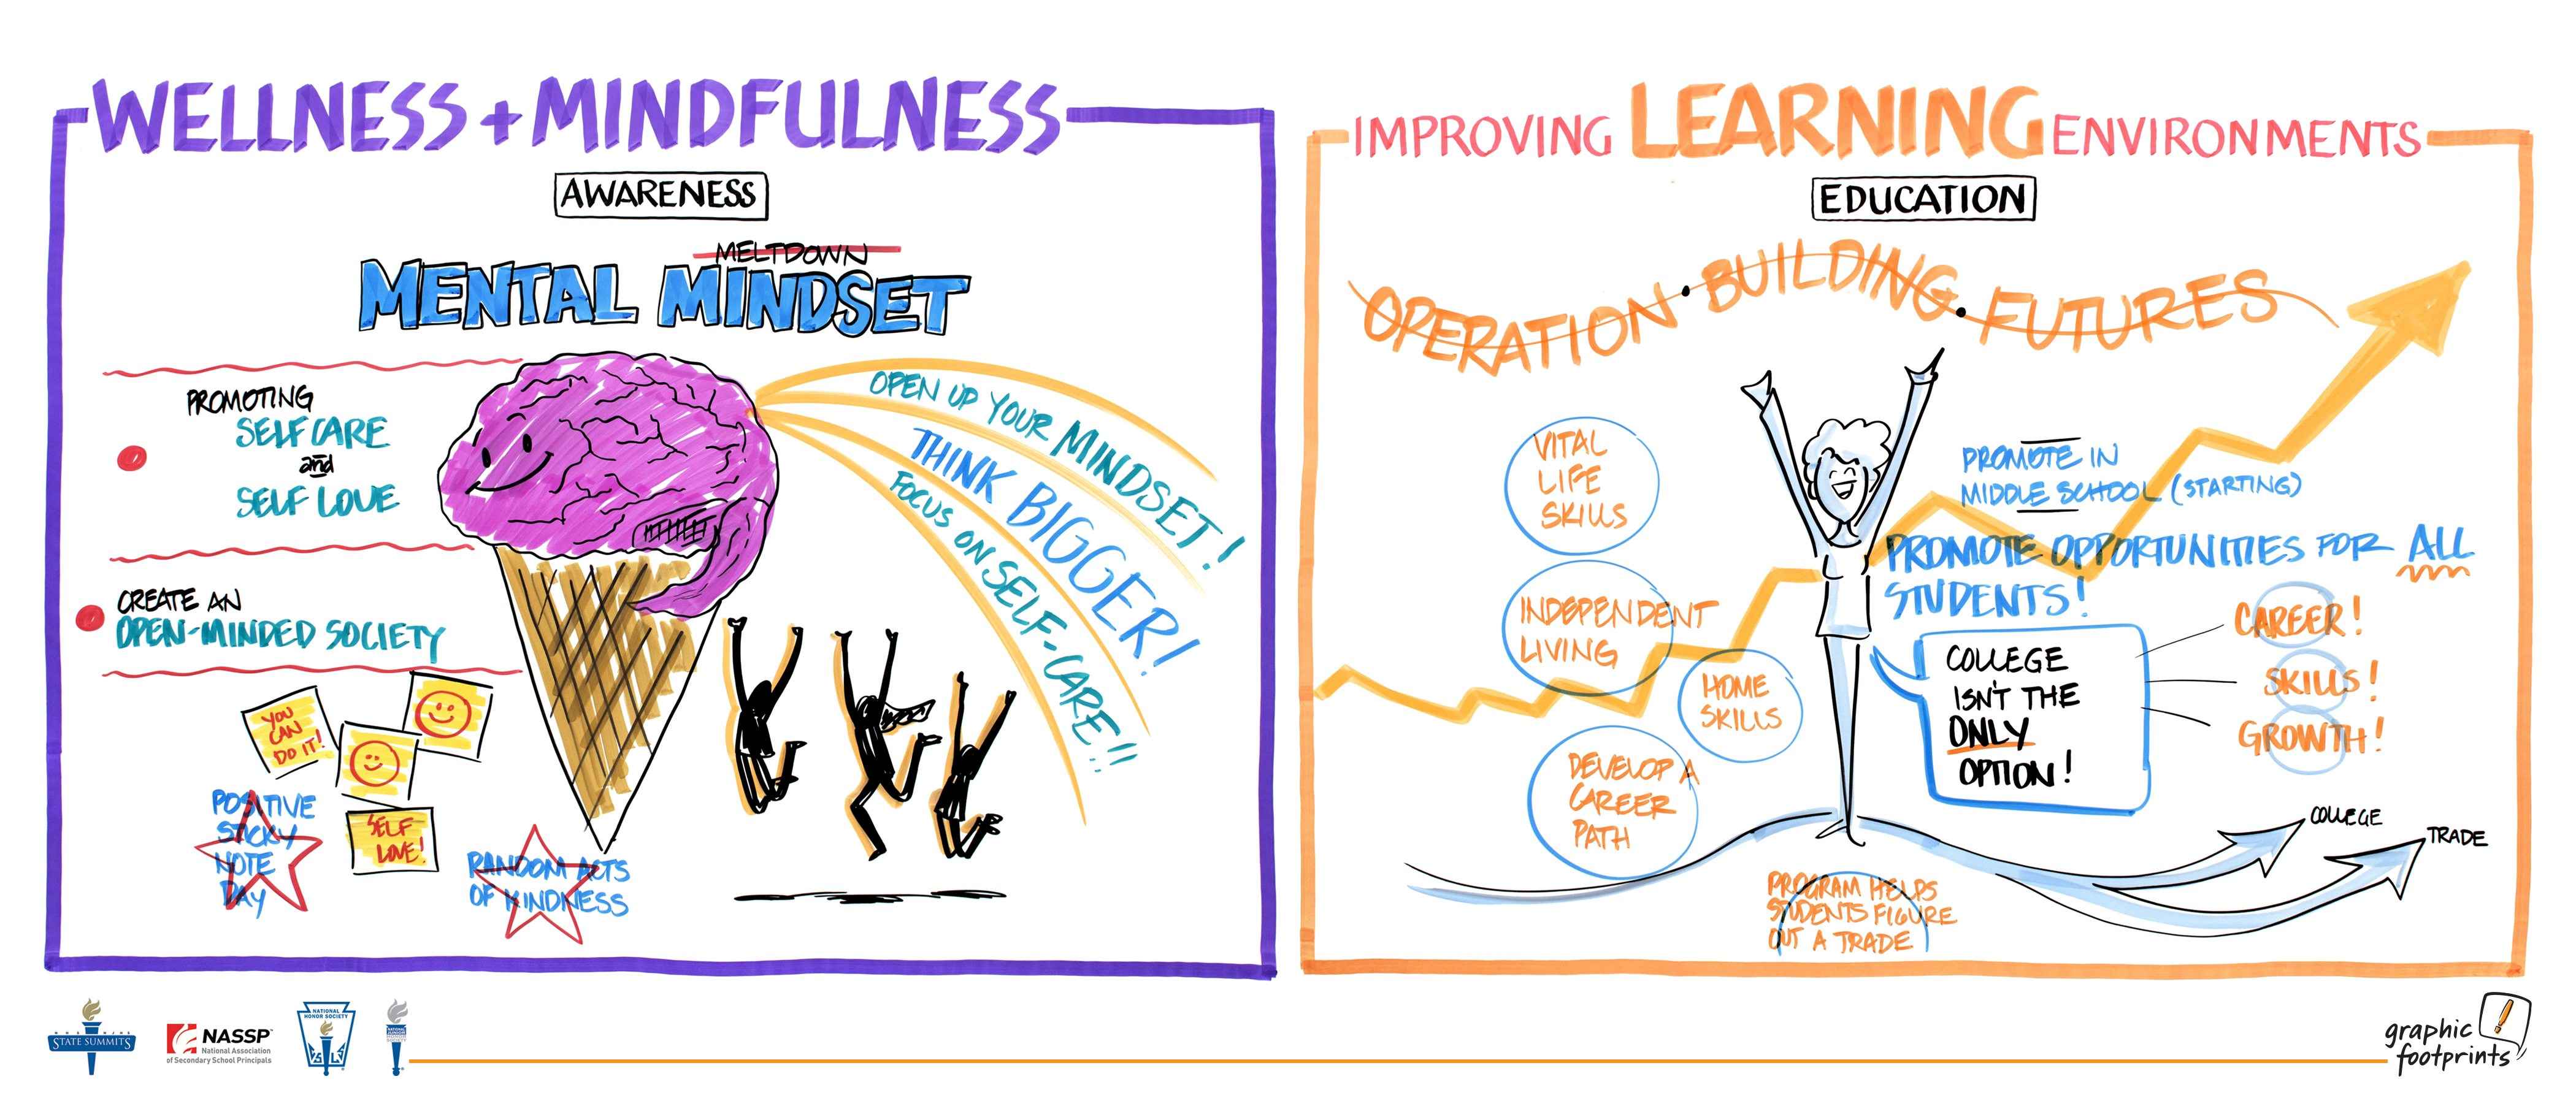 WELLNESS + MINDFULNESS
AWARENESS
MELTDOWN
MENTAL MINDSET
PROMOTING
SELFCARE
and
SELF LOVE
CREATE AN
OPEN-MINDED SOCIETY
OPEN UP YOUR MINDSET!
THINK BIGGER!
FOCUS ON SELF-CARE!!
YOU
CAN
DO IT!
SELF
LOVE!
POSITIVE
STICKY
NOTE
DAY
RANDOM ACTS
OF KINDNESS
IMPROVING LEARNING ENVIRONMENTS
EDUCATION
OPERATION • BUILDING • FUTURES
VITAL
LIFE
SKILLS
INDEPENDENT
LIVING
HOME
SKILLS
DEVELOP A
CAREER
PATH
PROMOTE IN
MIDDLE SCHOOL (STARTING)
PROMOTE OPPORTUNITIES FOR ALL
STUDENTS!
COLLEGE
ISN'T THE
ONLY
OPTION!
CAREER!
SKILLS!
GROWTH!
COLLEGE
TRADE
PROGRAM HELPS
STUDENTS FIGURE
OUT A TRADE
NHS NJHS
STATE SUMMITS
NASSP
National Association
of Secondary School Principals
NATIONAL
HONOR SOCIETY
graphic
footprints